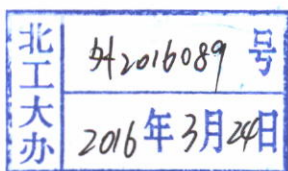 北工大办
外2016089号
2016年3月24日